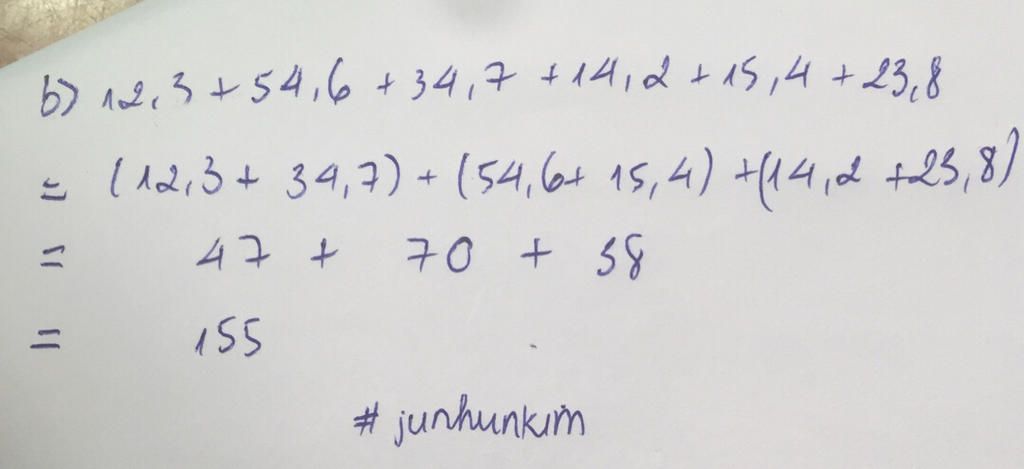 b) 12,3 + 54,6 + 34,7 + 14,2 + 15,4 + 23,8
= (12,3 + 34,7) + (54,6 + 15,4) + (14,2 + 23,8)
= 47 + 70 + 38
= 155
# junhunkim